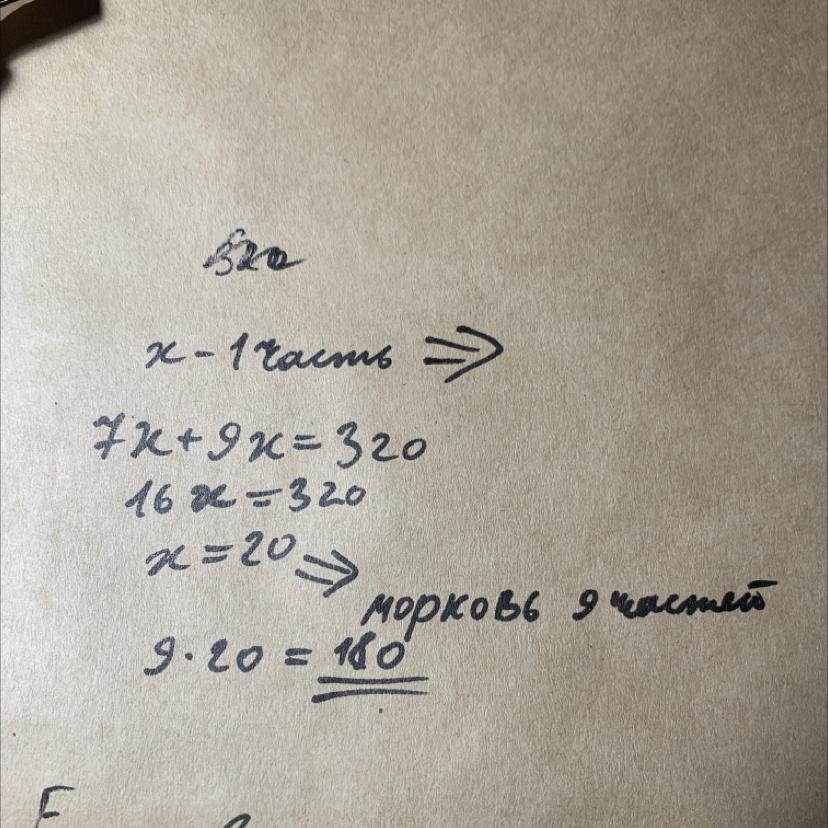 x - 1 часть ⇒
7x + 9x = 320
16x = 320
x = 20 ⇒
морковь 9 частей
9 · 20 = 180